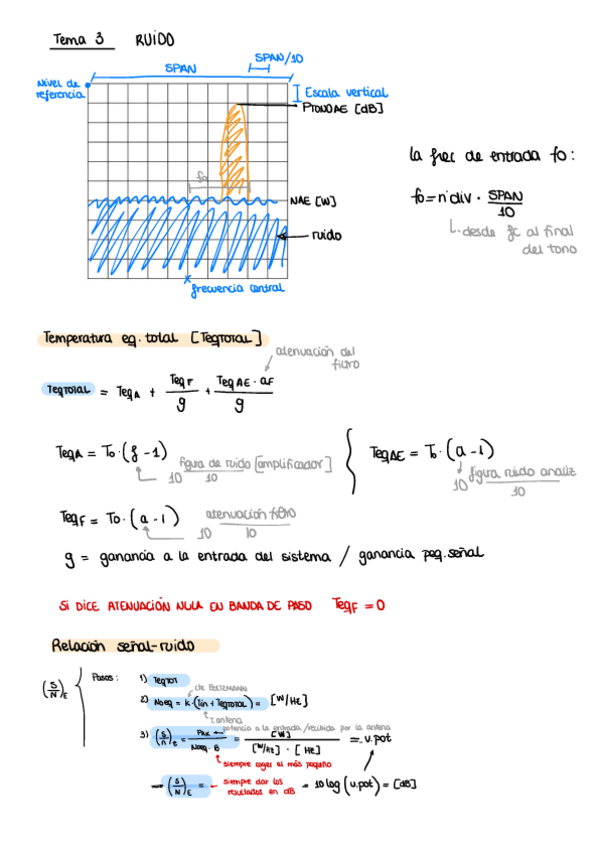 Tema 3 RUIDO
SPAN
SPAN/10
Nivel de
referencia
Escala vertical
PTONOAE [dB]
fo
NAE [W]
ruido
frecuencia central
la frec de entrada fo:
fo = nºdiv · SPAN/10
desde fc al final
del tono
Temperatura eq. total [TeqTOTAL]
atenuación del
filtro
TeqTOTAL = TeqA + TeqF/g + TeqAE · aF/g
TeqA = To · (f - 1)
10 figura de ruido [amplificador]/10
TeqAE = To · (a - 1)
10 figura ruido analiz/10
TeqF = To · (a - 1)
10 atenuación filtro/10
g = ganancia a la entrada del sistema / ganancia peq. señal
SI DICE ATENUACIÓN NULA EN BANDA DE PASO TeqF = 0
Relación señal-ruido
(S/N)E
Pasos:
1) TeqTOT
cte BOLTZMANN
2) Noeq = K · (Tin + TeqTOTAL) = [W/Hz]
T. antena
potencia a la entrada/recibida por la antena
3) (S/N)E = /Noeq · B = [W]/[W/Hz] · [Hz] = u.pot
siempre coger el más pequeño
(S/N)E = siempre dar los resultados en dB = 10 log (u.pot) = [dB]